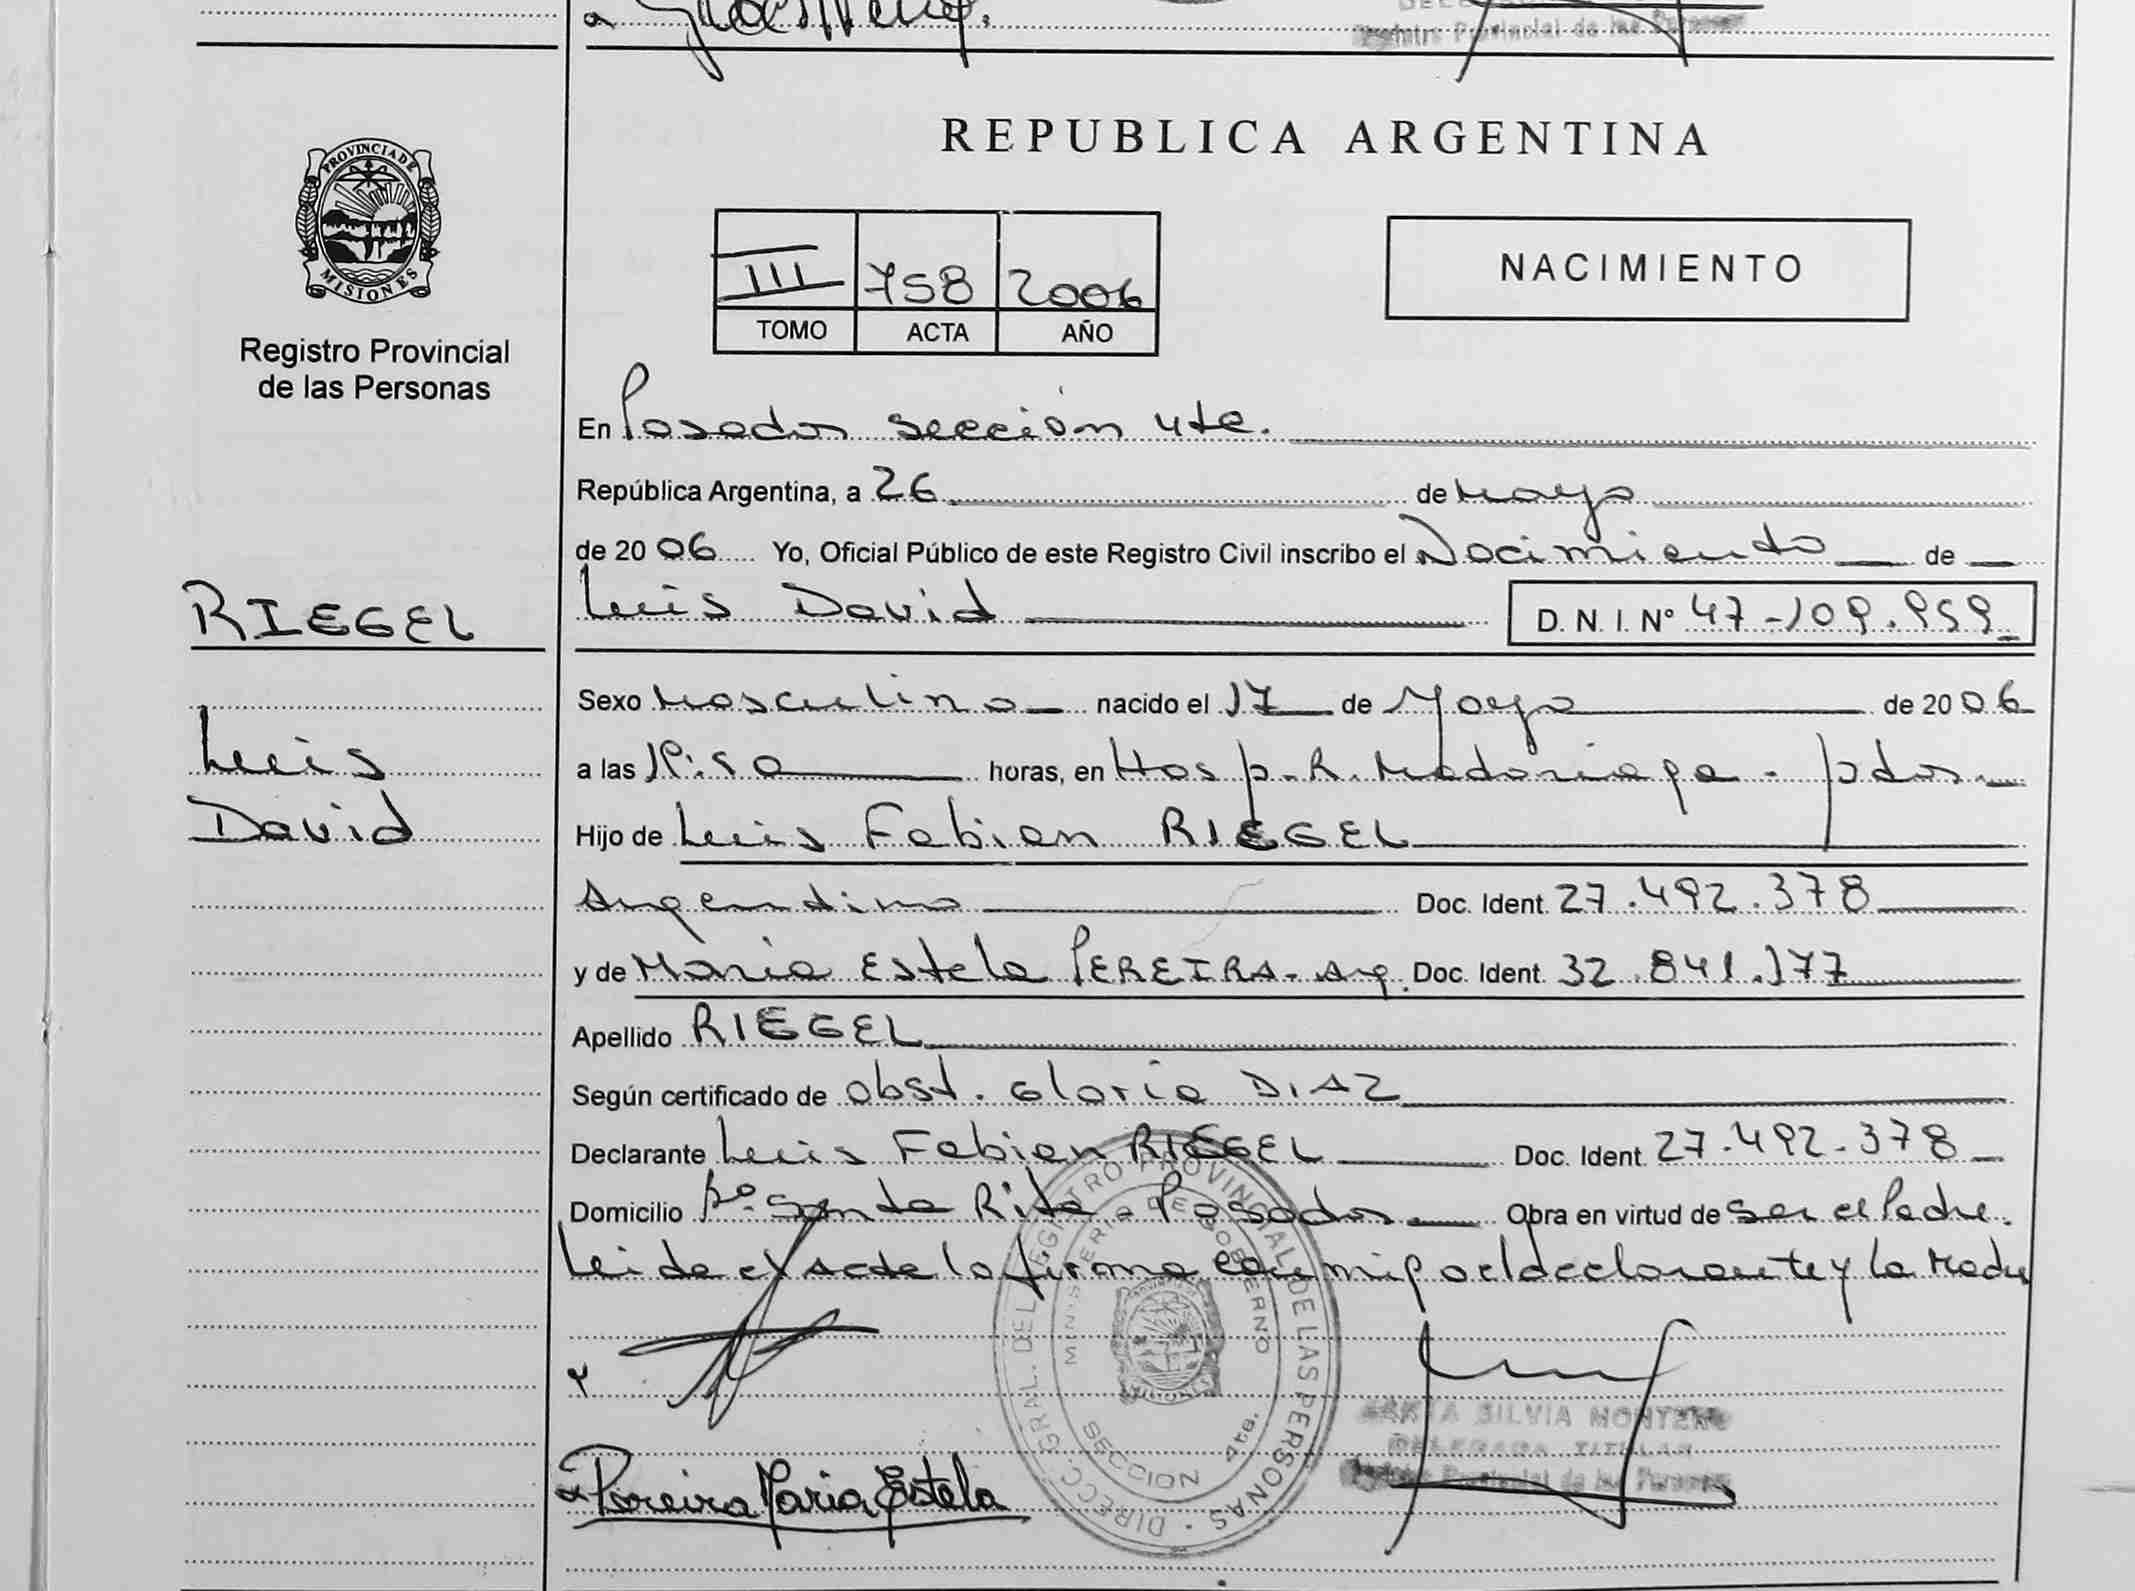 Registro Provincial de las Personas
PROVINCIA DE
MISIONES
Registro Provincial
de las Personas
RIEGEL
Luis
David
REPUBLICA ARGENTINA
III 758 2006
TOMO ACTA AÑO
NACIMIENTO
En Posadas sección 4ta.
República Argentina, a 26 de Mayo
de 2006 Yo, Oficial Público de este Registro Civil inscribo el Nacimiento de
Luis David D. N. I. Nº 47-109.959
Sexo Masculino nacido el 17 de Mayo de 2006
a las horas, en Hosp. R. Madariaga - Pdas
Hijo de Luis Fabian RIEGEL
Argentino Doc. Ident. 27.492.378
y de Maria Estela PEREIRA - Arg. Doc. Ident. 32.841.177
Apellido RIEGEL
Según certificado de Obst. Gloria DIAZ
Declarante Luis Fabian RIEGEL Doc. Ident. 27.492.378
Domicilio Bº Santa Rita - Posadas Obra en virtud de ser el Padre.
Leida el Acta la firma conmigo el declarante y la Madre
DIRECC. GRAL. DEL REGISTRO PROVINCIAL DE LAS PERSONAS
MINISTERIO DE GOBIERNO
SECCION 4ta.
SILVIA MONTERO
DELEGADA TITULAR
Provincial de las Personas
Pereira Maria Estela